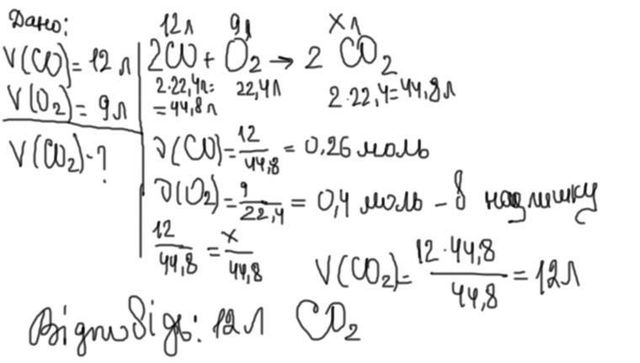 Дано:
V(CO)= 12 л
V(O₂)= 9л
V(CO₂)-?
12л 9л Xл
2CO + O₂ → 2 CO₂
2·22,4л= 22,4л 2·22,4=44,8л
=44,8л
ν(CO)=12/44,8 = 0,26 моль
ν(O₂)=9/22,4 = 0,4 моль – в надлишку
12/44,8 = x/44,8
V(CO₂)=12·44,8/44,8 = 12л
Відповідь: 12л CO₂